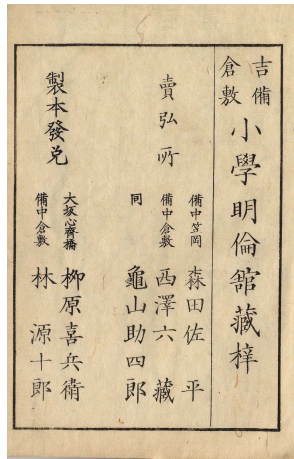 吉備倉敷 小學明倫舘藏梓
賣弘所
備中笠岡 森田佐平
備中倉敷 西澤六藏
同 龜山助四郎
製本發兌
大坂心齋橋 柳原喜兵衛
備中倉敷 林源十郎